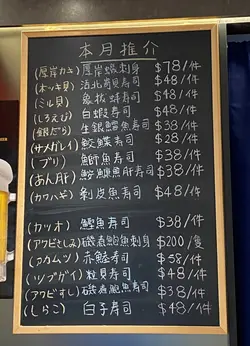 本月推介
(厚岸カキ) 厚岸蠔刺身 $78/件
(ホッキ貝) 活北寄貝寿司 $48/件
(ミル貝) 象拔蚌寿司 $48/件
(しろえび) 白蝦寿司 $48/件
(銀だら) 生銀鱈魚寿司 $38/件
(サメガレイ) 鮫鰈寿司 $28/件
(ブリ) 鰤魚寿司 $38/件
(あん肝) 鮟鱇魚肝寿司 $38/件
(カワハギ) 剝皮魚寿司 $48/件
(カツオ) 鰹魚寿司 $38/件
(アワビさしみ) 磯煮鮑魚刺身 $200/隻
(アカムツ) 赤鯥寿司 $58/件
(ツブガイ) 粒貝寿司 $48/件
(アワビすし) 磯煮鮑魚寿司 $38/件
(しらこ) 白子寿司 $48/件